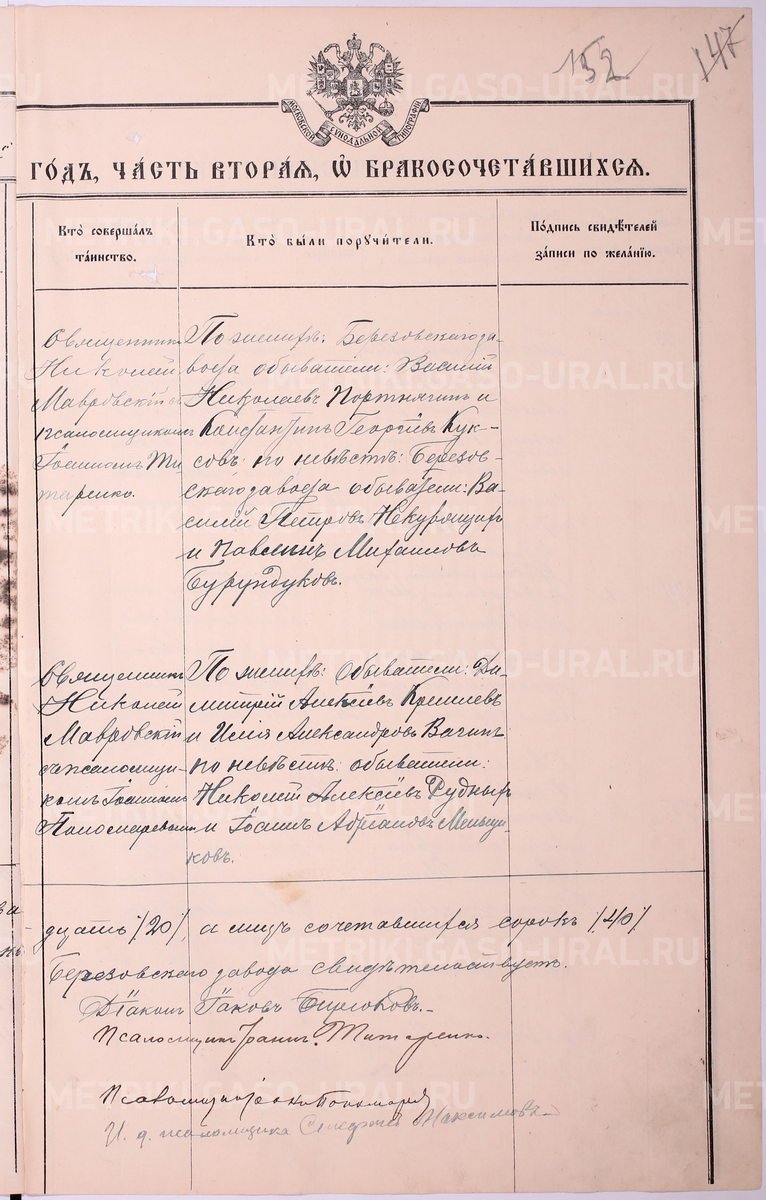 152
147
МОСКОВСКОЙ СѴНОДАЛЬНОЙ ТИПОГРАФІИ
ГО́ДЪ, ЧА́СТЬ ВТОРА́Я, Ѡ БРАКОСОЧЕТА́ВШИХСЯ.
Кто̀ соверша́лъ
та́инство.
Кто̀ бы́ли порꙋчи́тели.
По́дпись свидѣ́телей
за́писи по жела́нїю.
Священникъ
Николай
Мавровскій съ
псаломщикомъ
Іоанномъ Ти
таренко.
По женихѣ: Березовскаго за-
вода обыватели: Василій
Николаевъ Портнягинъ и
Константинъ Георгіевъ Кук-
совъ. по невѣстѣ: Березов-
скаго завода обыватели: Ва-
силій Петровъ
и Павелинъ Михаиловъ
Бурундуковъ.
Священникъ
Николай
Мавровскій
съ псаломщи-
комъ Іоанномъ
Пономаревымъ
По женихѣ: обыватели: Ди-
митрій Алексіевъ Кремлевъ
и Илія Александровъ Вагинъ
по невѣстѣ: обыватели:
Николай Алексіевъ
и Іоаннъ Меньщи-
ковъ.
дцать /20/, а лицъ сочетавшихся сорокъ /40/
Березовскаго завода свидѣтельствуетъ.
Діаконъ Іаковъ Бирюковъ.
Псаломщикъ Іоаннъ Титаренко.
Псаломщикъ Іоаннъ Пономаревъ
И. д. псаломщика Максимовъ
METRIKI.GASO-URAL.RU